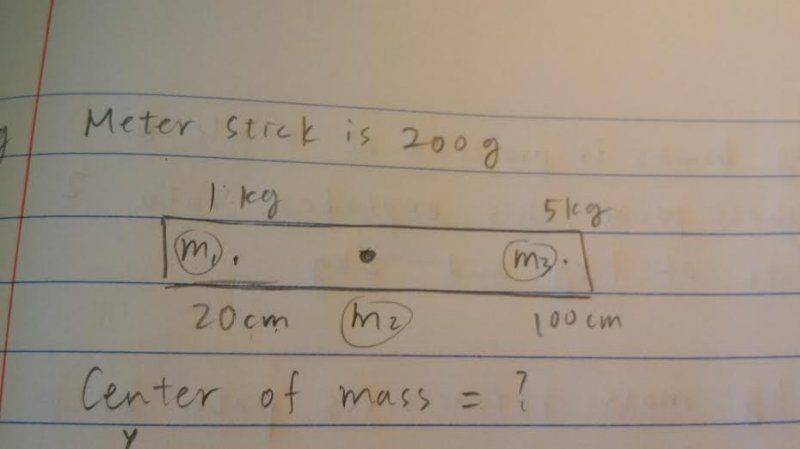 g
Meter stick is 200g
1 kg 5kg
m1 m3
20cm m2 100cm
Center of mass = ?